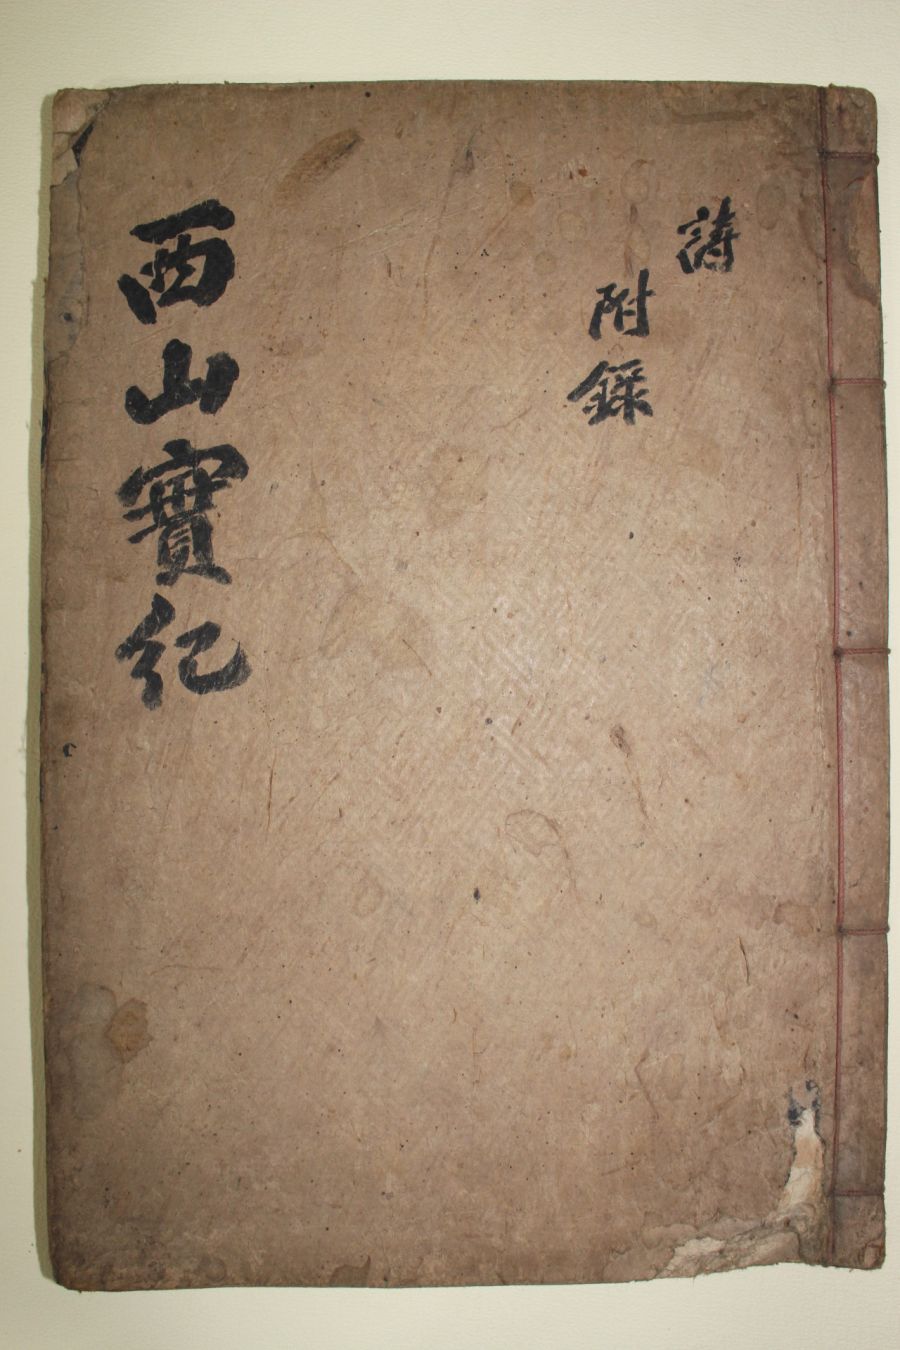 詩
附錄
西山實紀